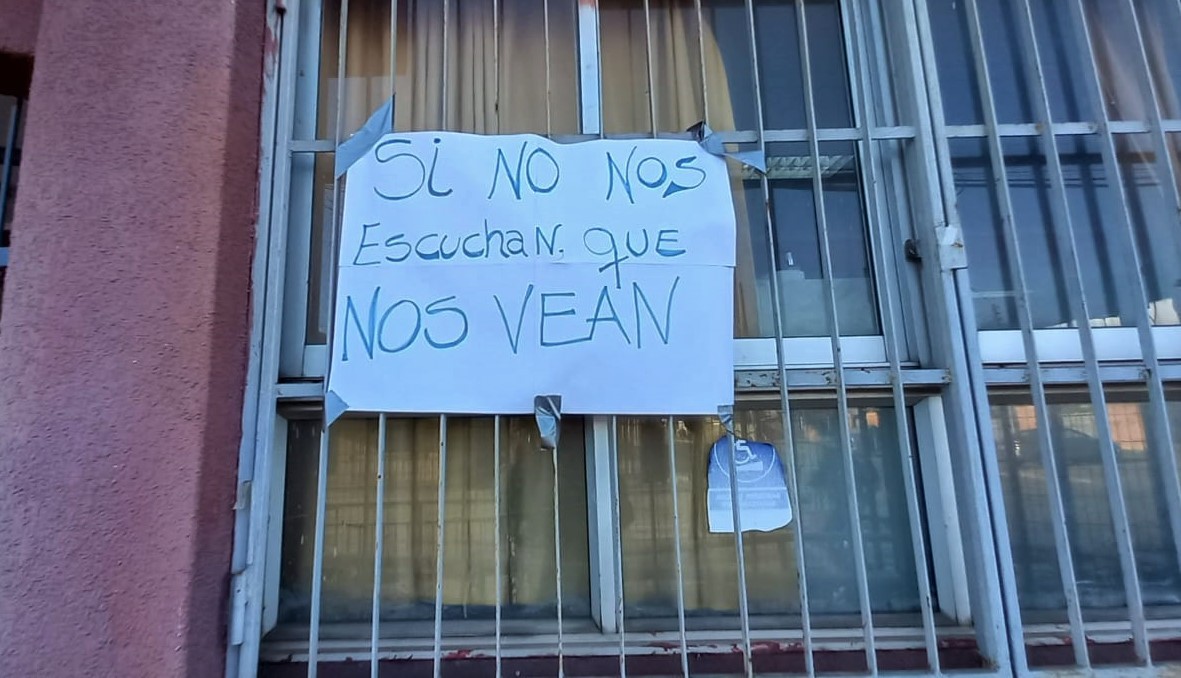 Si NO NOS
EscuchaN, QUE
NOS VEAN